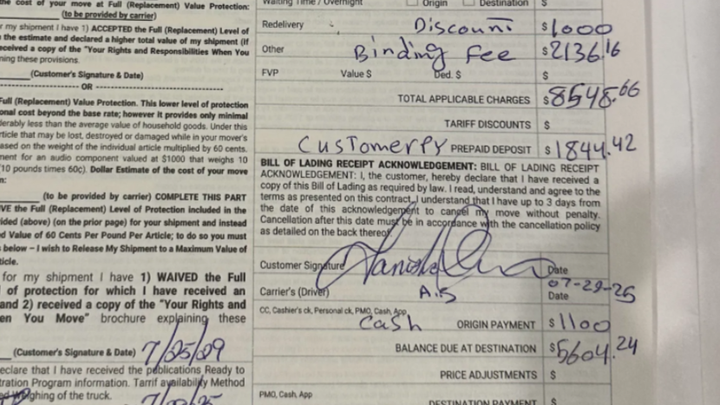 the cost of your move at Full (Replacement) Value Protection:
(to be provided by carrier)
r my shipment I have 1) ACCEPTED the Full (Replacement) Level of
n the estimate and declared a higher total value of my shipment (If
eceived a copy of the "Your Rights and Responsibilities When You
ning these provisions.
(Customer's Signature & Date)
OR
Full (Replacement) Value Protection. This lower level of protection
onal cost beyond the base rate; however it provides only minimal
derably less than the average value of household goods. Under this
rticle that may be lost, destroyed or damaged while in your mover's
ased on the weight of the individual article multiplied by 60 cents.
ment for an audio component valued at $1000 that weighs 10
10 pounds times 60c). Dollar Estimate of the cost of your move
n:
(to be provided by carrier) COMPLETE THIS PART
IVE the Full (Replacement) Level of Protection included in the
vided (above) (on the prior page) for your shipment and instead
d Value of 60 Cents Per Pound Per Article; to do so you must
s below – I wish to Release My Shipment to a Maximum Value of
ticle.
for my shipment I have 1) WAIVED the Full
l of protection for which I have received an
and 2) received a copy of the "Your Rights and
en You Move" brochure explaining these
(Customer's Signature & Date) 7/25/29
eclare that I have received the publications Ready to
tration Program information. Tarrif availability Method
ed Weighing of the truck.
Waiting Time / Overnight Origin Destination $
Redelivery Discount $1000
Other Binding Fee $2136.16
FVP Value $ Ded. $ $
TOTAL APPLICABLE CHARGES $8548.66
TARIFF DISCOUNTS $
PREPAID DEPOSIT $1844.42
BILL OF LADING RECEIPT ACKNOWLEDGEMENT: BILL OF LADING RECEIPT
ACKNOWLEDGEMENT: I, the customer, hereby declare that I have received a
copy of this Bill of Lading as required by law. I read, understand and agree to the
terms as presented on this contract, I understand that I have up to 3 days from
the date of this acknowledgement to cancel my move without penalty.
Cancellation after this date must be in accordance with the cancellation policy
as detailed on the back thereof
Customer Signature Date
07-29-25
Carrier's (Driver) A.S Date
CC, Cashier's ck, Personal ck, PMO, Cash, App
Cash ORIGIN PAYMENT $1100
BALANCE DUE AT DESTINATION $5604.24
PRICE ADJUSTMENTS $
PMO, Cash, App
DESTINATION PAYMENT $